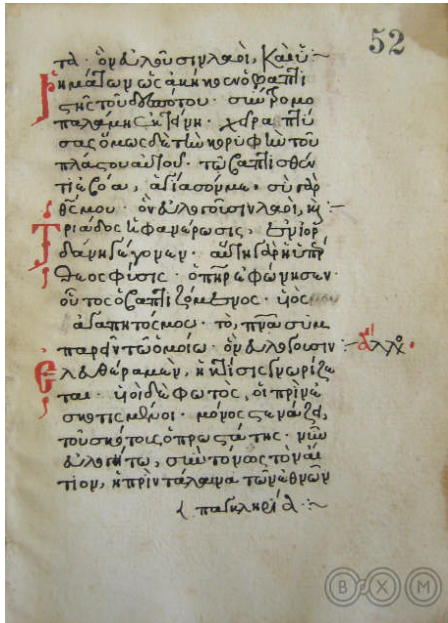 52
τα· ὃν εὐλογοῦσιν λαοί, καὶ ὑ
Ῥημάτων ὡς ἀκήκοεν ὁ βαπτι
στὴς τοῦ δεσπότου· σύντρομο
παλάμην ἐκτείνη· χειραπτή
σας ὅμως δὲ τὴν κορυφὴν τοῦ
πλάστου αὐτοῦ· τῷ βαπτισθέν
τι ἐβόα, ἁγίασόν με· σὺ γὰρ
θς μου· ὃν εὐλογοῦσιν λαοί, κ
Τριάδος ἡ φανέρωσις, ἐν ἰορ
δάνῃ γέγονεν· αὕτη γὰρ ἡ ὑπέρ
θεος φύσις· ὁ πηρ ἐφώνησεν·
οὗτος ὁ βαπτιζόμενος· υἱὸς
ἀγαπητός μου· τὸ, πνα συμ
παρῆν τῷ ὁμοίω· ὃν εὐλογοῦσιν
Ἐλευθέρα μὲν, ἡ κτίσις γνωρίζε
ται· υἱοὶ δὲ φωτὸς, οἱ πρὶν ἐ
σκοτισμένοι· μόνος στενάζει,
τοῦ σκότους ὁ προστάτης· νῦν
εὐλογείτω, συντόνως τὸν αἴ
τιον, ἡ πρὶν τάλαινα τῶν ἐθνῶν
παγκληρία
B X M